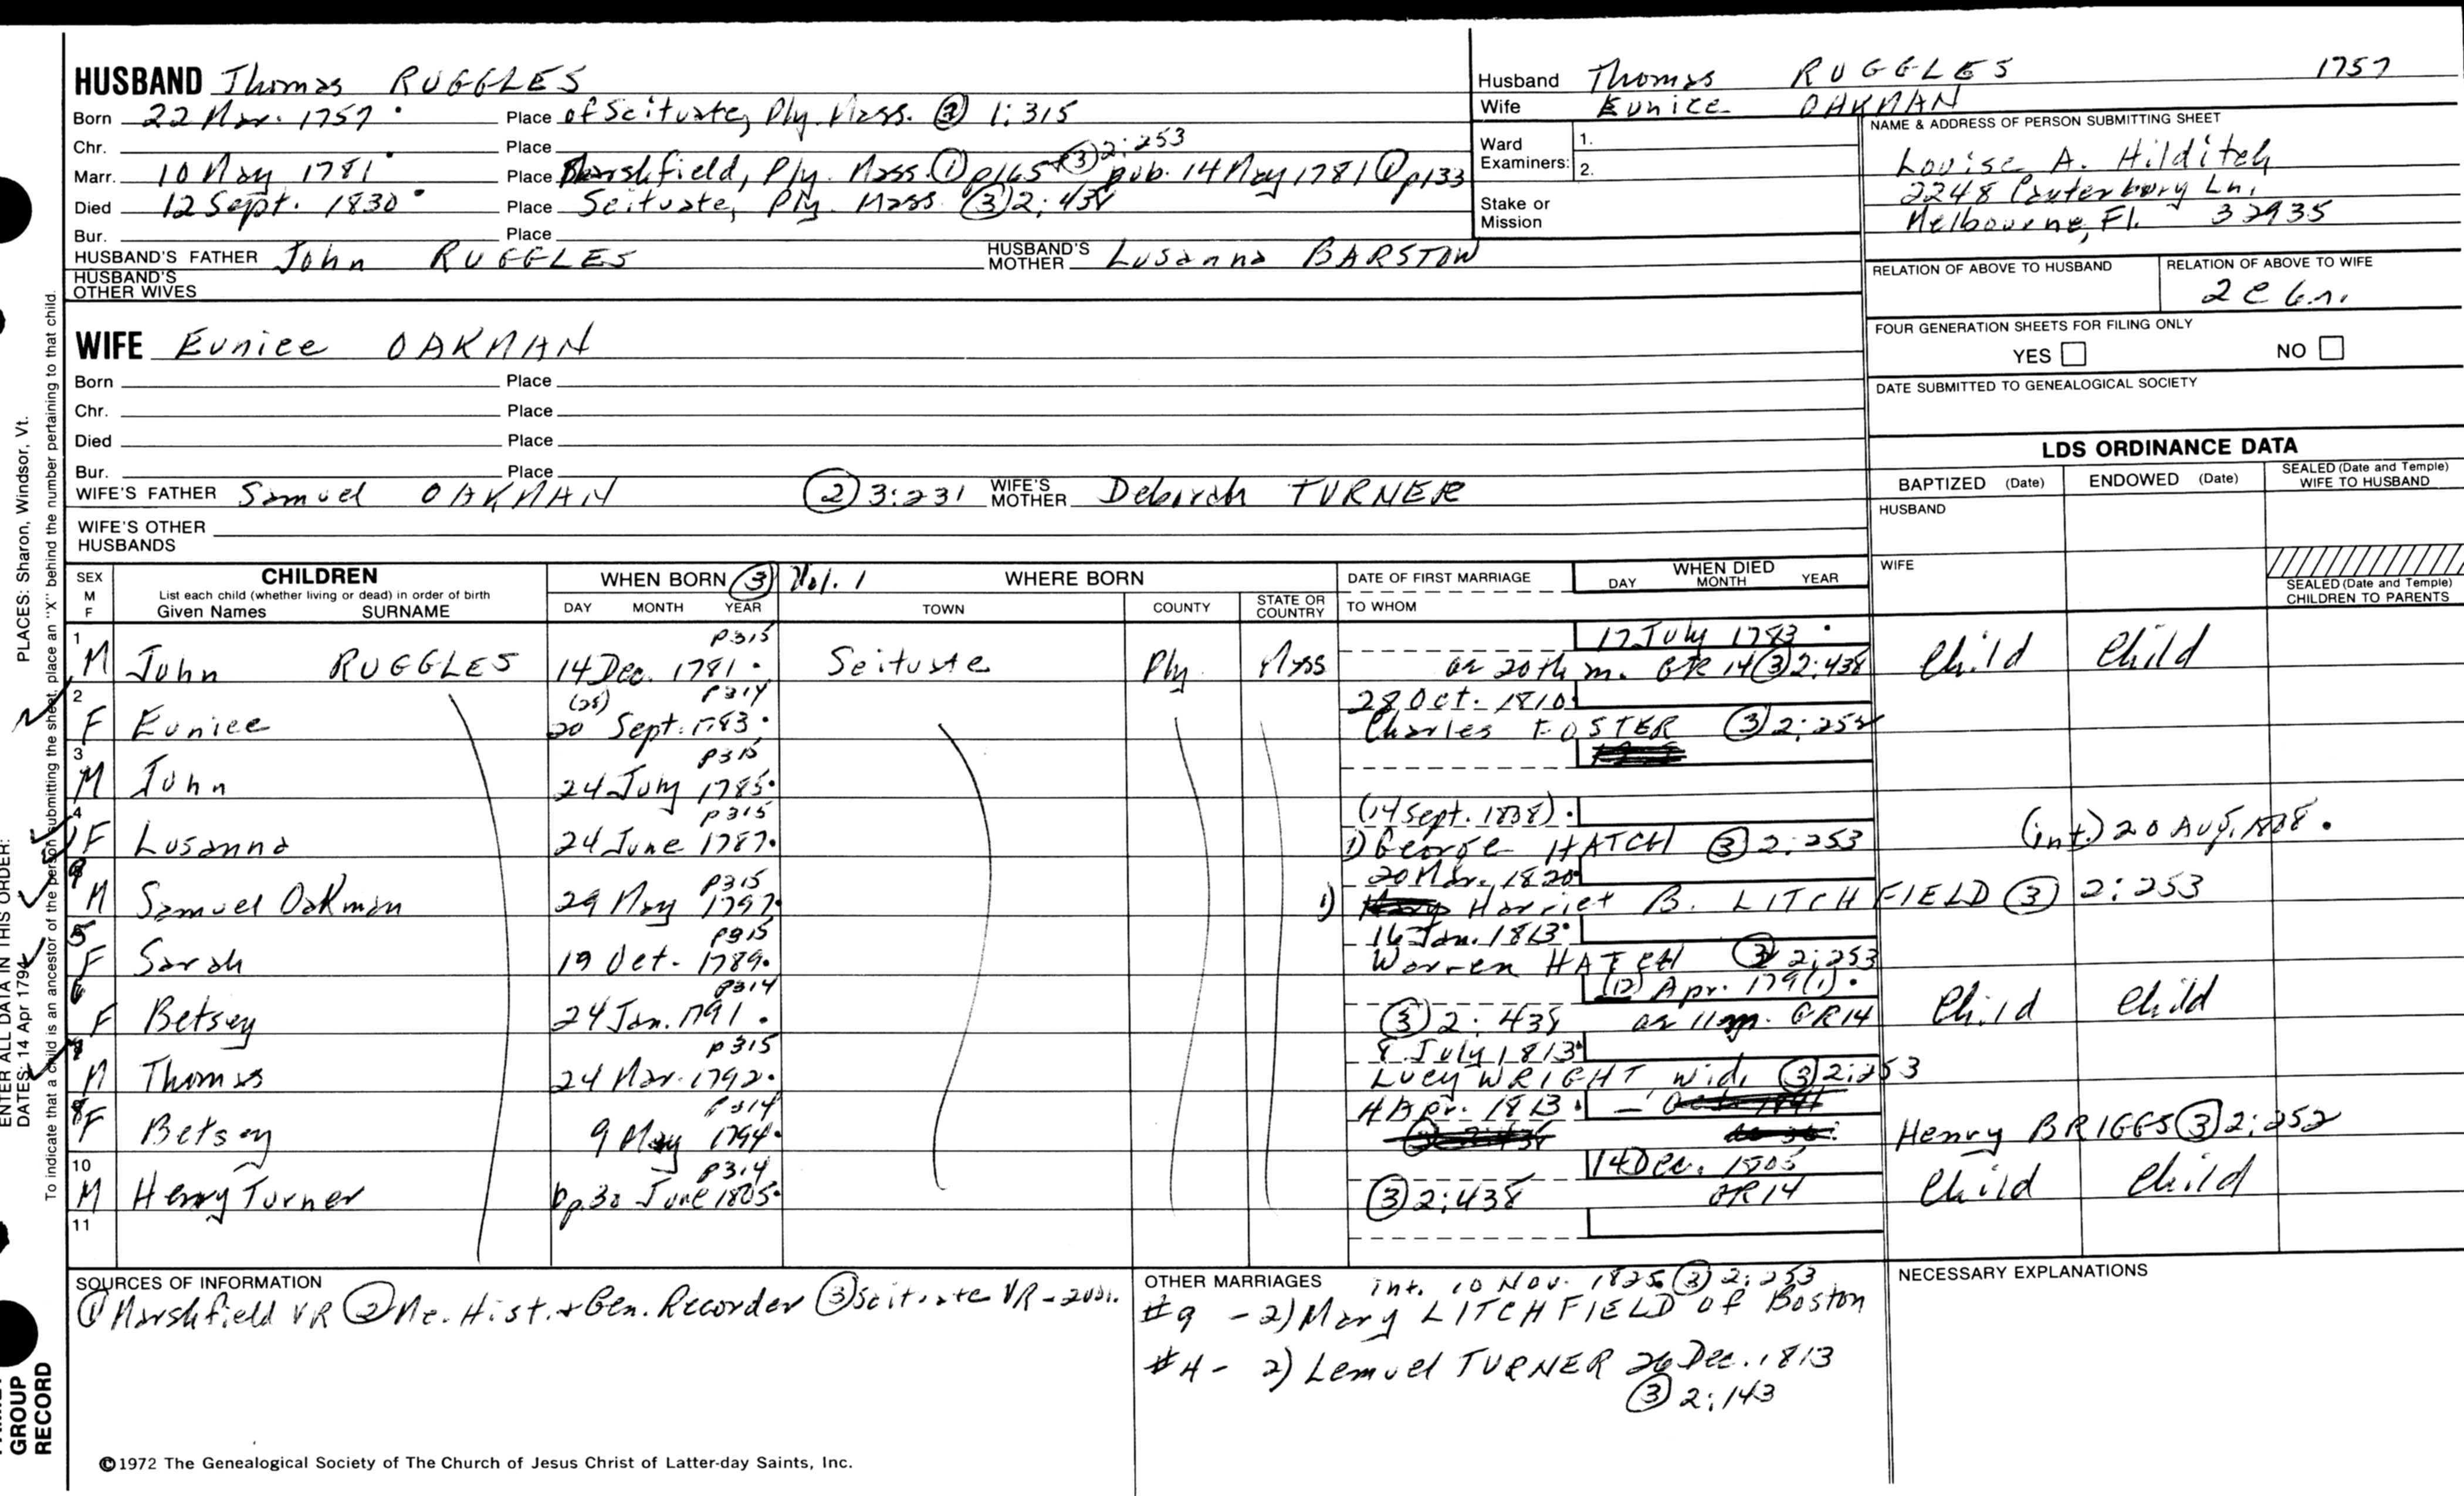 HUSBAND Thomas RUGGLES
Born 22 Mar. 1757 Place of Scituate, Ply. Mass. ③ 1:315
Chr. Place
Marr. 10 May 1781 Place Marshfield, Ply. Mass. ① p165 + ③ 2:253 pub. 14 May 1781 ① p133
Died 12 Sept. 1830 Place Scituate, Ply. Mass. ③ 2:438
Bur. Place
HUSBAND'S FATHER John RUGGLES HUSBAND'S MOTHER Lusanna BARSTOW
HUSBAND'S OTHER WIVES
Husband Thomas RUGGLES 1757
Wife Eunice OAKMAN
Ward Examiners: 1. 2.
Stake or Mission
NAME & ADDRESS OF PERSON SUBMITTING SHEET
Louise A. Hilditch
2248 Canterbury Ln.
Melbourne, Fl. 32935
RELATION OF ABOVE TO HUSBAND RELATION OF ABOVE TO WIFE
2c 6.n.
FOUR GENERATION SHEETS FOR FILING ONLY
YES NO
DATE SUBMITTED TO GENEALOGICAL SOCIETY
WIFE Eunice OAKMAN
Born Place
Chr. Place
Died Place
Bur. Place
WIFE'S FATHER Samuel OAKMAN ② 3:231 WIFE'S MOTHER Deborah TURNER
WIFE'S OTHER HUSBANDS
LDS ORDINANCE DATA
BAPTIZED (Date) ENDOWED (Date) SEALED (Date and Temple) WIFE TO HUSBAND
HUSBAND
WIFE
SEALED (Date and Temple) CHILDREN TO PARENTS
SEX M F
CHILDREN
List each child (whether living or dead) in order of birth
Given Names SURNAME
WHEN BORN ③ Vol. 1 WHERE BORN
DAY MONTH YEAR TOWN COUNTY STATE OR COUNTRY
DATE OF FIRST MARRIAGE
TO WHOM
WHEN DIED
DAY MONTH YEAR
1 p315 17 July 1783
M John RUGGLES 14 Dec. 1781 Scituate Ply Mass ae 20th m. GR 14 ③ 2:438 Child Child
2 (28) p314 28 Oct. 1810
F Eunice 20 Sept. 1783 Charles FOSTER ③ 2:252
3 p315
M John 24 July 1785
4 p315 (14 Sept. 1838)
F Lusanna 24 June 1787 1) George HATCH ③ 2:253 (int.) 20 Aug. 1808
9 p315 20 Mar. 1820
M Samuel Oakman 29 May 1797 1) Harriet B. LITCHFIELD ③ 2:253
5 p315 16 Jan. 1813
F Sarah 19 Oct. 1789 Warren HATCH ③ 2:253
6 p314 (12) Apr. 179(1)
F Betsey 24 Jan. 1791 ③ 2:438 ae 11 m. GR14 Child Child
7 p315 8 July 1813
M Thomas 24 Mar. 1792 Lucy WRIGHT wid. ③ 2:253
8 p314 4 Apr. 1813
F Betsey 9 May 1794 Henry BRIGGS ③ 2:252
10 p314 14 Dec. 1805
M Henry Turner bp. 30 June 1805 ③ 2:438 GR14 Child Child
11
SOURCES OF INFORMATION
① Marshfield VR ② Me. Hist. + Gen. Recorder ③ Scituate VR - 2 vol.
OTHER MARRIAGES int. 10 Nov. 1825 ③ 2:253
#9 - 2) Mary LITCHFIELD of Boston
#4 - 2) Lemuel TURNER 26 Dec. 1813
③ 2:143
NECESSARY EXPLANATIONS
©1972 The Genealogical Society of The Church of Jesus Christ of Latter-day Saints, Inc.
PLACES: Sharon, Windsor, Vt.
ENTER ALL DATA IN THIS ORDER:
DATES: 14 Apr 1794
To indicate that a child is an ancestor of the person submitting the sheet, place an "X" behind the number pertaining to that child.
GROUP
RECORD